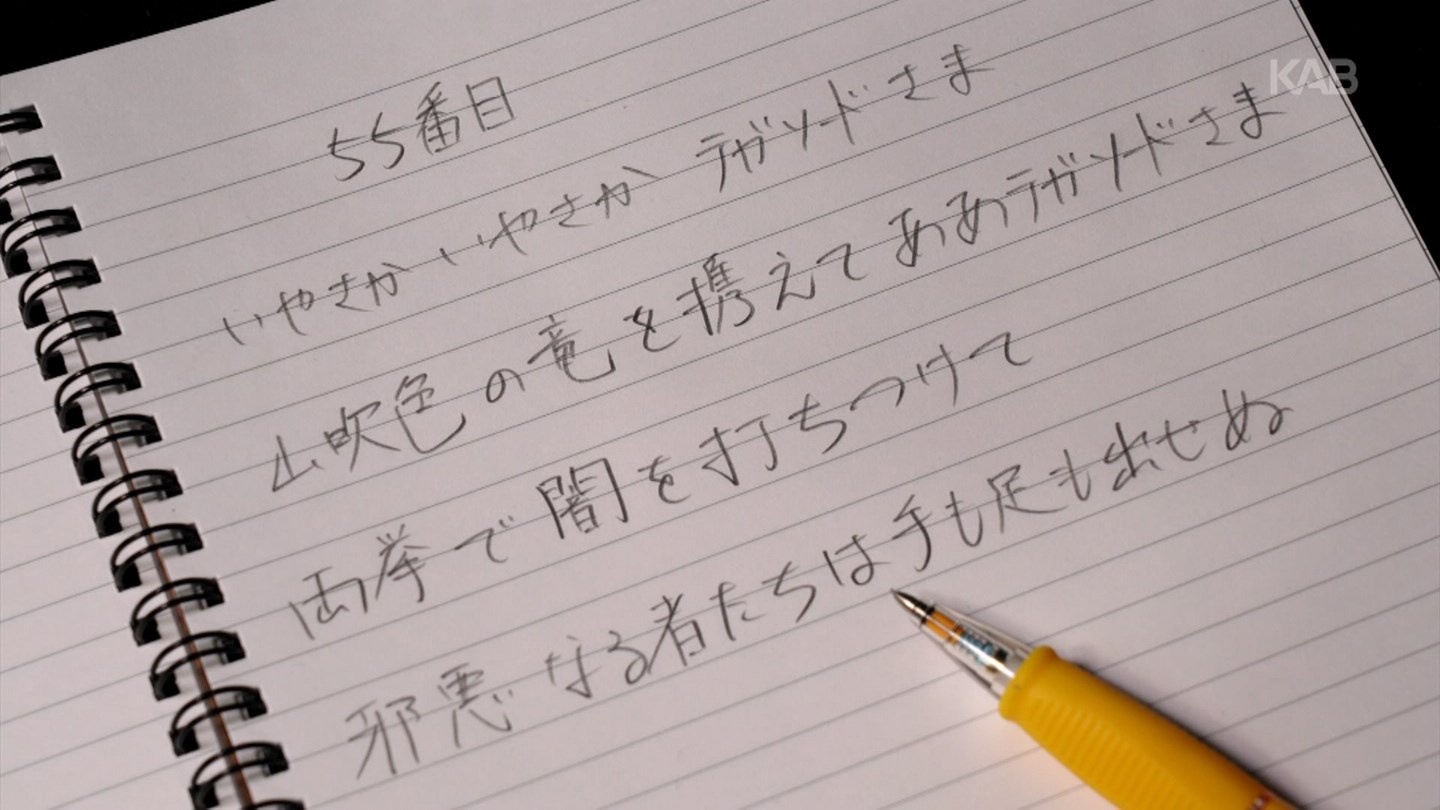 KAB
55番目
いやさか いやさか テガソードさま
山吹色の竜を携えて ああテガソードさま
両拳で闇を打ちつけて
邪悪なる者たちは手も足も出せぬ